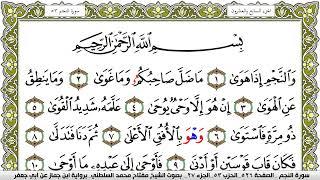 سورة النجم ٥٣
الجزء السابع والعشرون
بِسْمِ اللَّهِ الرَّحْمَٰنِ الرَّحِيمِ
وَالنَّجْمِ إِذَا هَوَىٰ ١ مَا ضَلَّ صَاحِبُكُمُۥ وَمَا غَوَىٰ ٢ وَمَا يَنطِقُ
عَنِ الْهَوَىٰ ٣ إِنْ هُوَ إِلَّا وَحْىٌ يُوحَىٰ ٤ عَلَّمَهُۥ شَدِيدُ الْقُوَىٰ ٥
ذُو مِرَّةٍ فَاسْتَوَىٰ ٦ وَهْوَ بِالْأُفُقِ الْأَعْلَىٰ ٧ ثُمَّ دَنَا فَتَدَلَّىٰ ٨
فَكَانَ قَابَ قَوْسَيْنِ أَوْ أَدْنَىٰ ٩ فَأَوْحَىٰ إِلَىٰ عَبْدِهِۦ مَا أَوْحَىٰ ١٠
سورة النجم - الصفحة ٥٢٦ - السورة ٥٣ - الجزء ٢٧ - بصوت الشيخ مفتاح محمد السلطني - برواية ابن جماز عن أبي جعفر